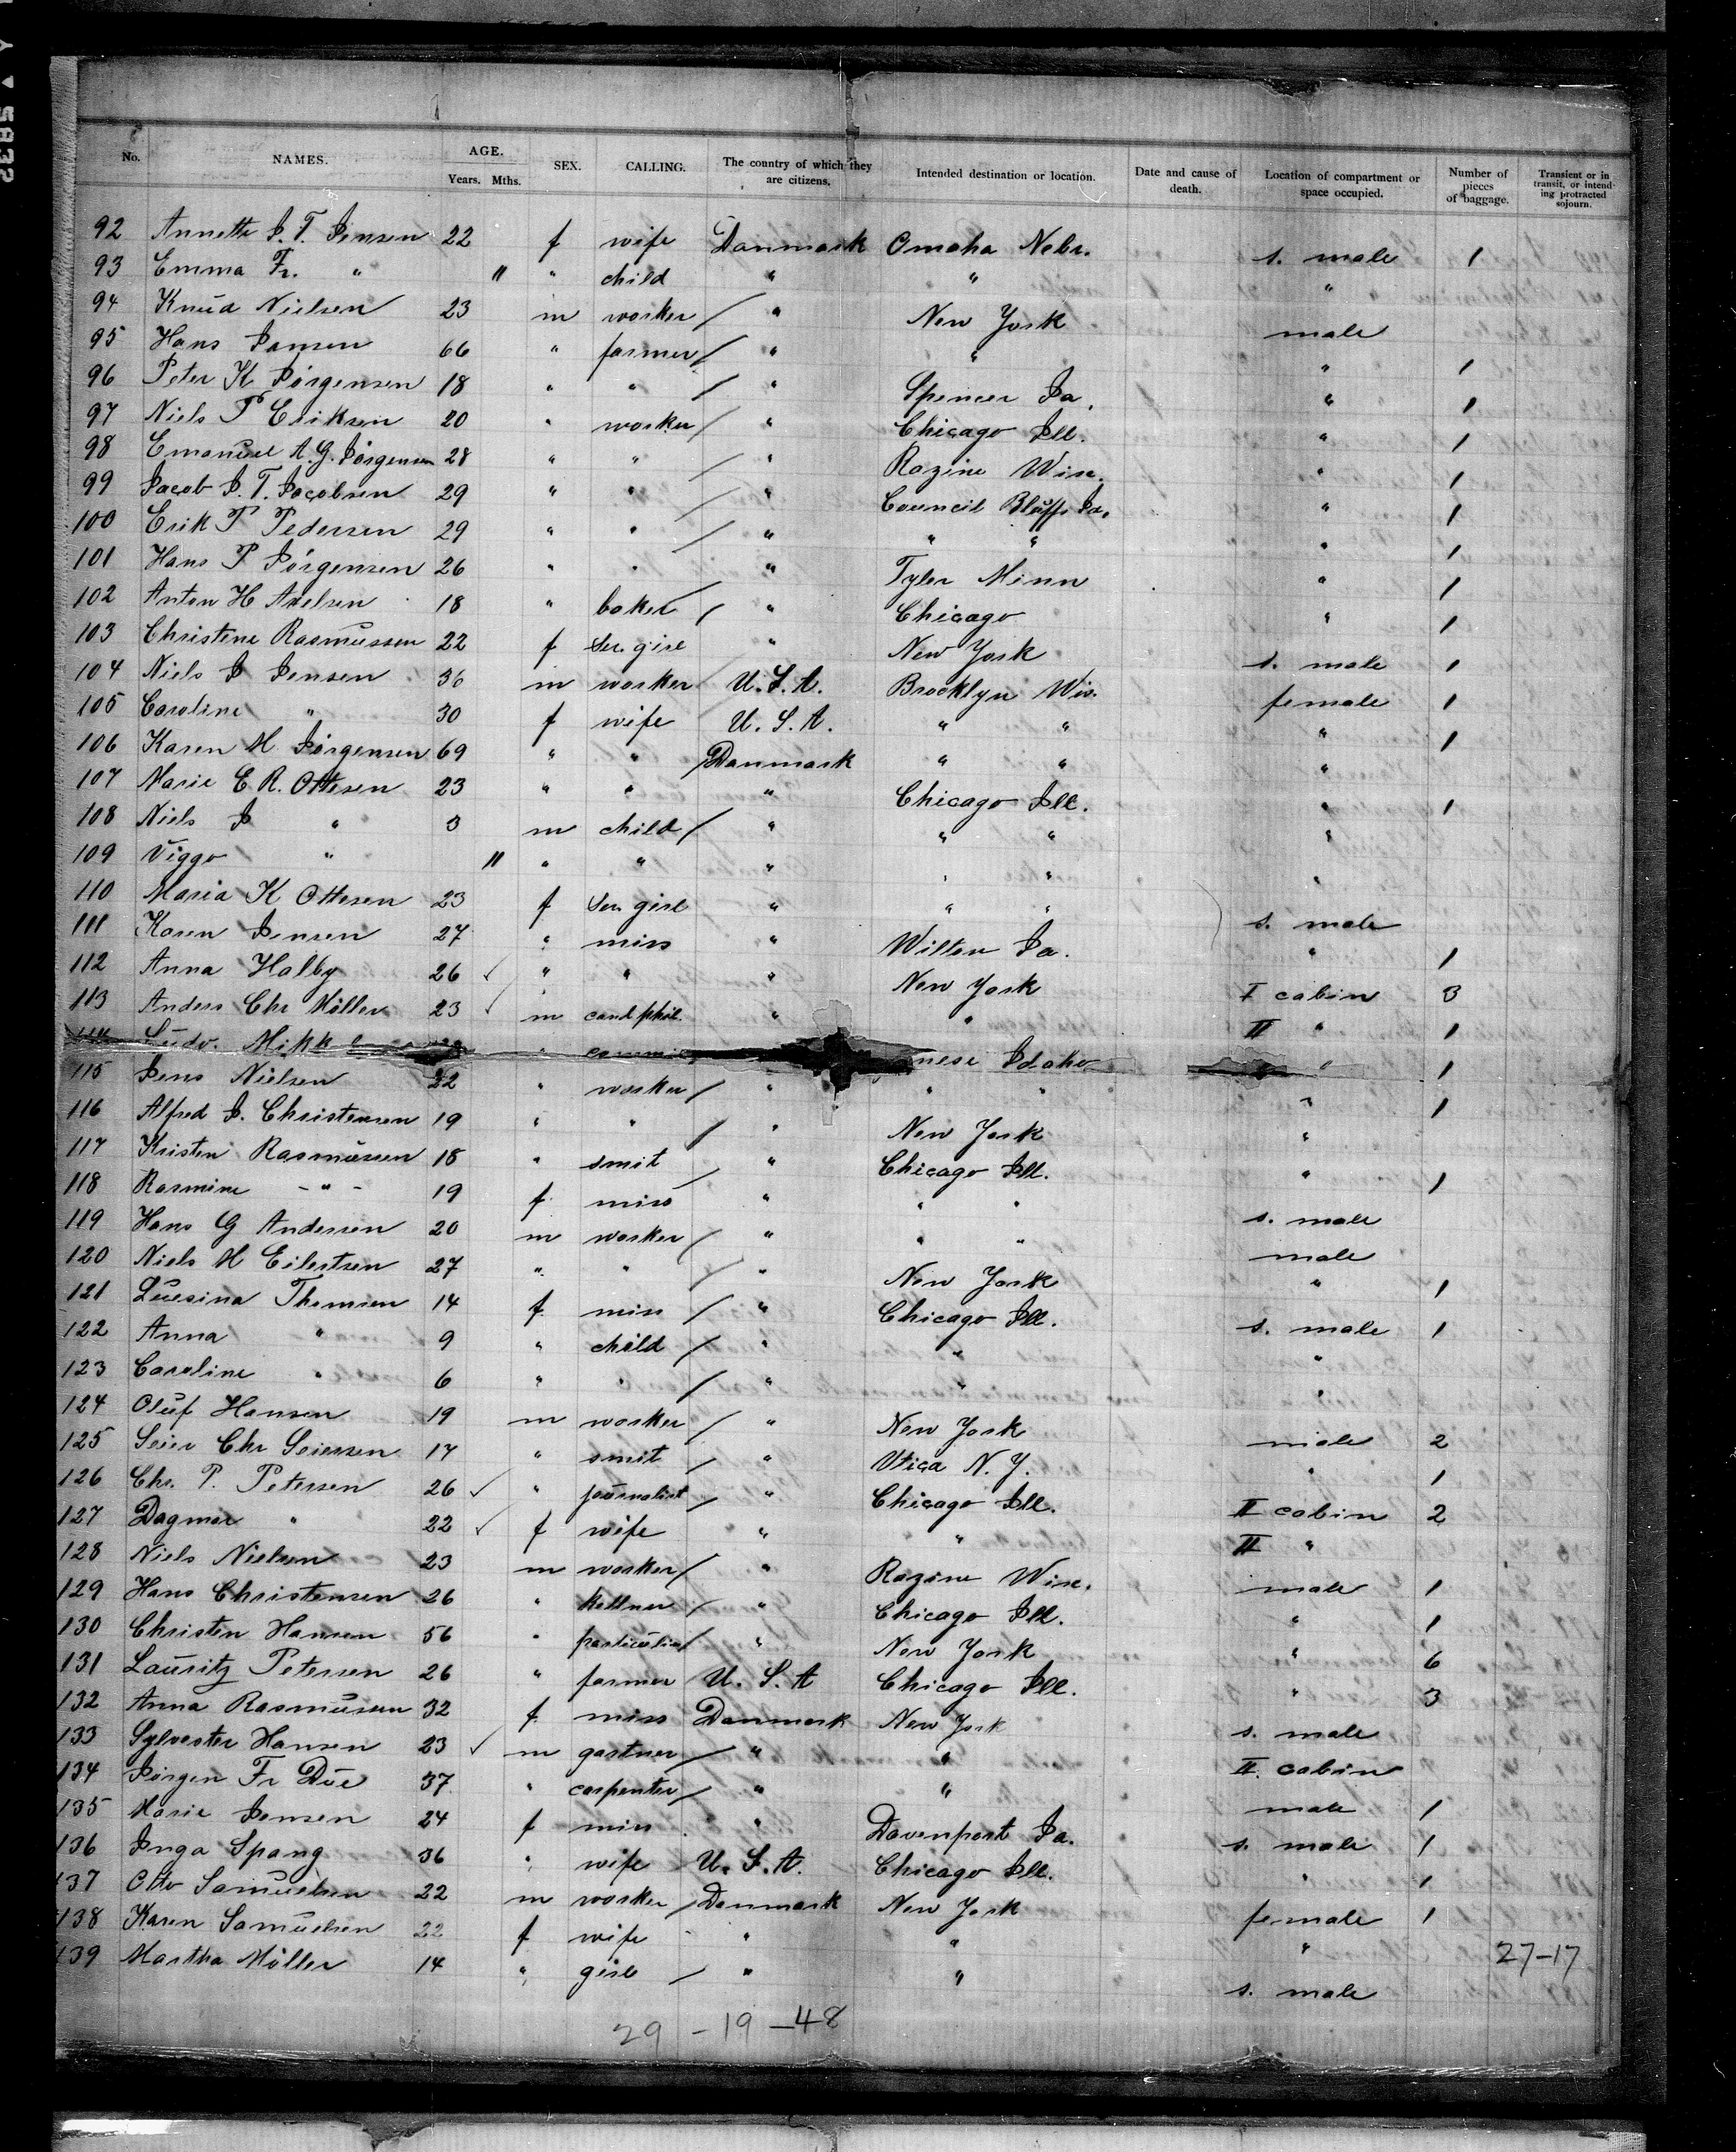 No. NAMES. AGE. Years. Mths. SEX. CALLING. The country of which they are citizens. Intended destination or location. Date and cause of death. Location of compartment or space occupied. Number of pieces of baggage. Transient or in transit, or intending protracted sojourn.
92 Annette J. T. Jensen 22 f wife Danmark Omaha Nebr. s. male 1
93 Emma Fr. " 11 " child " " "
94 Knud Nielsen 23 m worker / " New York male
95 Hans Jansen 66 " farmer / " " " 1
96 Peter K Jörgensen 18 " " / " Spencer Ja. " 1
97 Niels P Eriksen 20 " worker / " Chicago Ill. " 1
98 Emanuel A. G. Jörgensen 28 " " / " Razine Wisc. " 1
99 Jacob J. T. Jacobsen 29 " " / " Council Bluffs Ja. " 1
100 Erik P Pedersen 29 " " / " " " " 1
101 Hans P Jörgensen 26 " " " Tyler Minn " 1
102 Anton H Axelsen 18 " baker / " Chicago " 1
103 Christine Rasmussen 22 f ser. girl " New York s. male 1
104 Niels J Jensen 36 m worker U. S. A. Brooklyn Wis. female 1
105 Caroline " 30 f wife U. S. A. " " " 1
106 Karen M Jörgensen 69 " " / Danmark " " "
107 Marie E. R. Ottesen 23 " " " Chicago Ill. " 1
108 Niels J " 3 m child / " " " "
109 Viggo " 11 " " " " " "
110 Maria K Ottesen 23 f ser. girl " " " s. male
111 Karen Jensen 27 " miss " Wilton Ja. " 1
112 Anna Halby 26 ✓ " " " New York I cabin 3
113 Anders Chr Möller 23 ✓ m cand phil. " " II " 1
Ludv. Mikk " Idaho " 1
115 Jens Nielsen 22 " worker / " " " " 1
116 Alfred J. Christensen 19 " " / " New York "
117 Kristen Rasmussen 18 " smit / " Chicago Ill. " 1
118 Rasmine - " - 19 f miss " " " s. male
119 Hans G Andersen 20 m worker / " " " male
120 Niels M Eilertsen 27 " " / " New York " 1
121 Luesina Thomsen 14 f miss / " Chicago Ill. s. male 1
122 Anna " 9 " child / " " "
123 Caroline " 6 " " / " " "
124 Oluf Hansen 19 m worker / " New York male 2
125 Seier Chr Seiersen 17 " smit / " Utica N. Y. " 1
126 Chr. P. Petersen 26 ✓ " journalist / " Chicago Ill. II cabin 2
127 Dagmar " 22 ✓ f wife " " II "
128 Niels Nielsen 23 m worker / " Razine Wisc. male 1
129 Hans Christensen 26 " kellner / " Chicago Ill. " 1
130 Christen Hansen 56 " particulier / " New York " 6
131 Lauritz Petersen 26 " farmer U. S. A Chicago Ill. " 3
132 Anna Rasmussen 32 f miss Danmark New York s. male
133 Sylvester Hansen 23 ✓ m gartner / " " II. cabin
134 Jörgen Fr Due 37 " carpenter / " " male 1
135 Marie Jensen 24 f miss " Davenport Ja. s. male 1
136 Inga Spang 36 " wife U. S. A. Chicago Ill. " 1
137 Otto Samuelsen 22 m worker / Danmark New York female 1
138 Karen Samuelsen 22 f wife " " "
27-17
139 Martha Möller 14 " girl / " " s. male
29 - 19 - 48